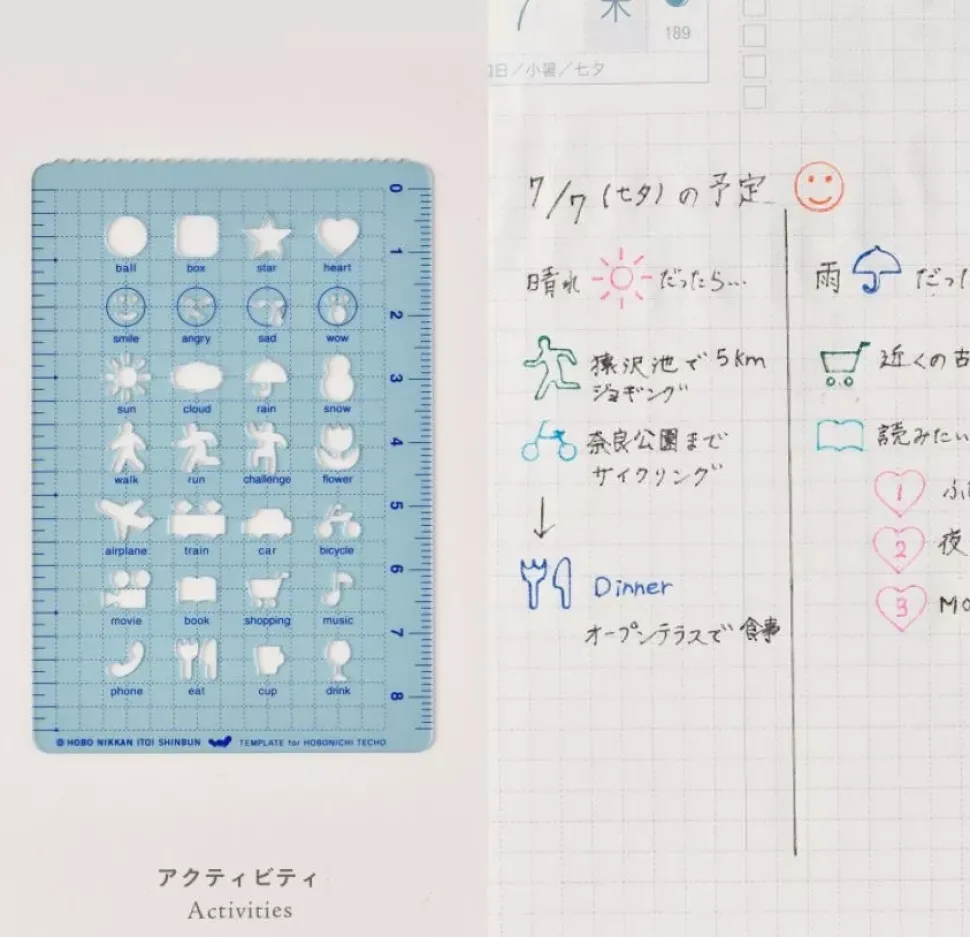 0
ball box star heart
1
smile angry sad wow
2
sun cloud rain snow
3
walk run challenge flower
4
airplane train car bicycle
5
movie book shopping music
6
phone eat cup drink
7
8
© HOBO NIKKAN ITOI SHINBUN TEMPLATE for HOBONICHI TECHO
アクティビティ
Activities
木
189
日/小暑/七夕
7/7(七夕)の予定
晴れ だったら…
猿沢池で5km
ジョギング
奈良公園まで
サイクリング
Dinner
オープンテラスで食事
雨 だった
近くの古
読みたい
1
2 夜
3 MO